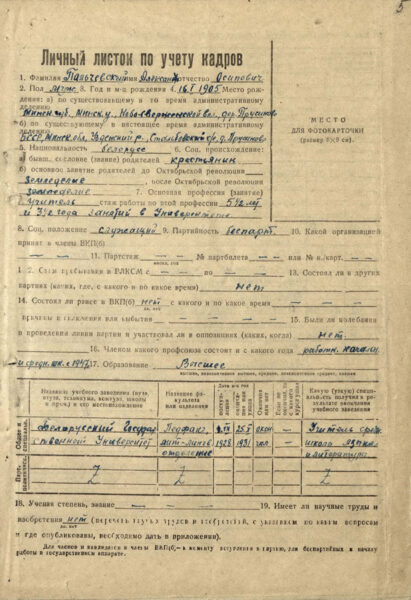 5
Личный листок по учету кадров
1. Фамилия Пальчевский имя Александр отчество Осипович.
2. Пол муж. 3. Год и м-ц рождения 4. 16.I 1905 Место рож-
дения: а) по существовавшему в то время административному
делению
Минск губ. Минск у. дер. Прусиново
б) по существующему в настоящее время административному
делению
БССР, Минск обл. Узденский р. с/с, д. Прусиново
5. Национальность белорус 6. Соц. происхождение:
а) бывш. сословие (звание) родителей крестьянин
б) основное занятие родителей до Октябрьской революции
Земледелие, после Октябрьской революции
земледелие 7. Основная профессия (занятие)
учитель стаж работы по этой профессии 5½ лет
и 3½ года занятий в Университете
МЕСТО
ДЛЯ ФОТОКАРТОЧКИ
8. Соц. положение служащий 9. Партийность беспарт. 10. Какой организацией
принят в члены ВКП(б) — — —
11. Партстаж — — № партбилета — — или № к./карт. — —
12. Стаж пребывания в ВЛКСМ с — — по — — 13. Состоял ли в других
партиях (каких, где, с какого и по какое время) нет
14. Состоял ли ранее в ВКП(б) нет с какого и по какое время — —
причины исключения или выбытия — — — 15. Были ли колебания
в проведении линии партии и участвовал ли в оппозициях (каких, когда) нет.
16. Членом какого профсоюза состоит и с какого года работн. началн.
и средн. шк. с 1947 17. Образование Высшее
высшее, незаконченное высшее, среднее, незаконченное среднее, низшее
Название учебного заведения (вуза, втуза, техникума, комвуза, школы и проч.) и его местоположение
Название факультета или отделения
Белорусский Государственный Университет
Педфак, лит-лингв. отделение
1928
1931
окон.
—
Учитель средн. школы языка и литературы
Z Z Z
18. Ученая степень, звание — — — 19. Имеет ли научные труды и
изобретения нет (перечень научных трудов и изобретений, с указанием по каким вопросам
да, нет
и где опубликованы, необходимо дать в приложении).
Для членов и кандидатов в члены ВКП(б) — к моменту вступления в партию, для беспартийных к началу
работы в государственном аппарате.